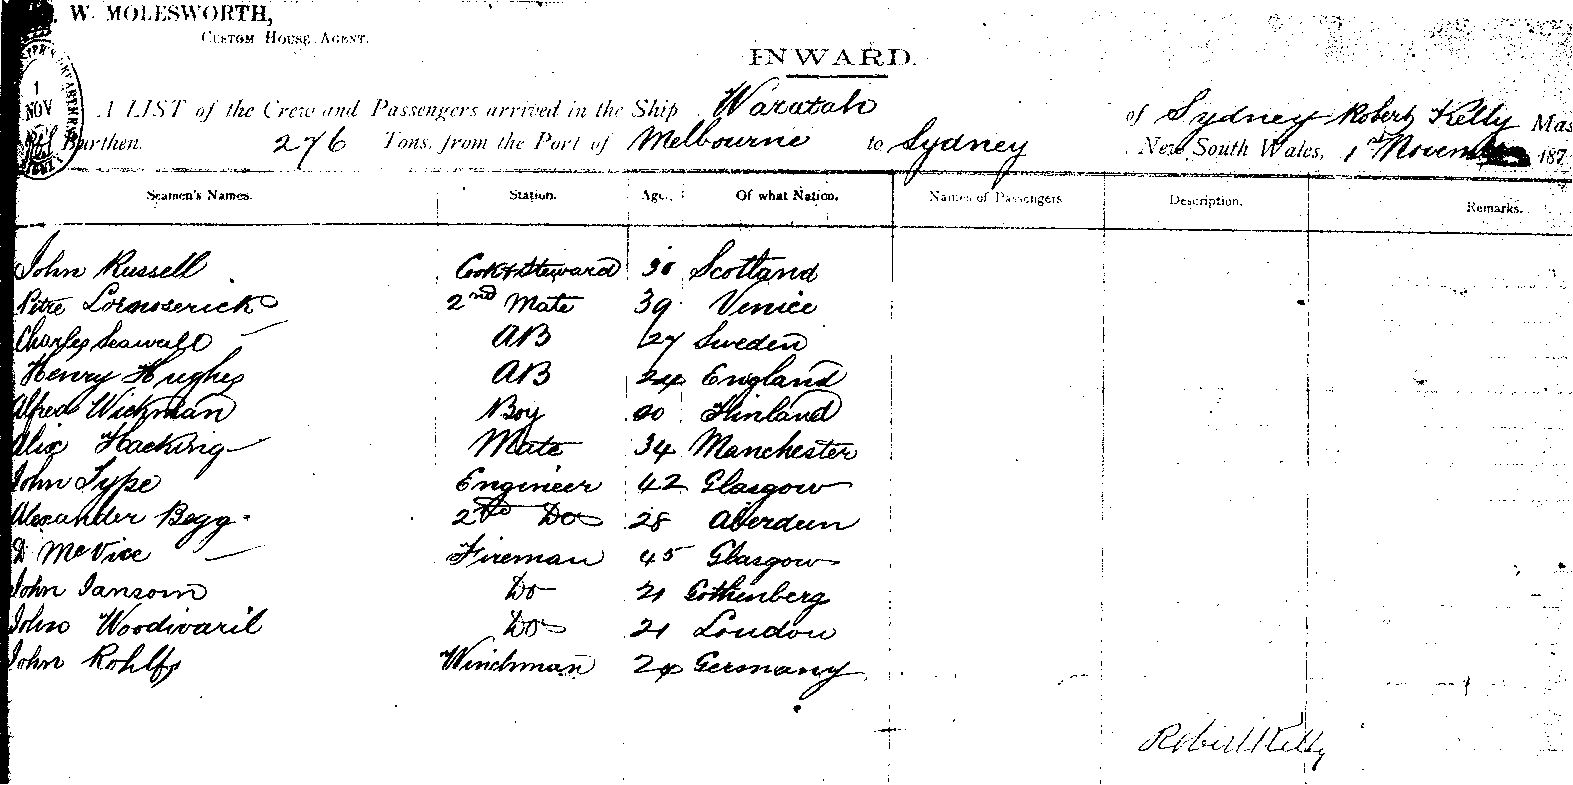 W. MOLESWORTH,
CUSTOM HOUSE AGENT.
INWARD.
1
NOV
A LIST of the Crew and Passengers arrived in the Ship Waratah of Sydney Robert Kelly Mas
Burthen. 276 Tons, from the Port of Melbourne to Sydney New South Wales, 1st November 187
Seamen's Names. Station. Age. Of what Nation. Names of Passengers Description. Remarks.
John Russell Cook & Steward 30 Scotland
Petre 2nd Mate 39 Venice
Charles Seawall AB 27 Sweden
Henry Hughes AB 24 England
Alfred Wickman Boy 20 Finland
Alix Hacking Mate 34 Manchester
John Sype Engineer 42 Glasgow
Alexander Begg 2nd Do 28 Aberdeen
D McVice Fireman 45 Glasgow
John Jansom Do 21 Gothenberg
John Woodivaril Do 21 London
John Rohlfs Winchman 24 Germany
Robert Kelly